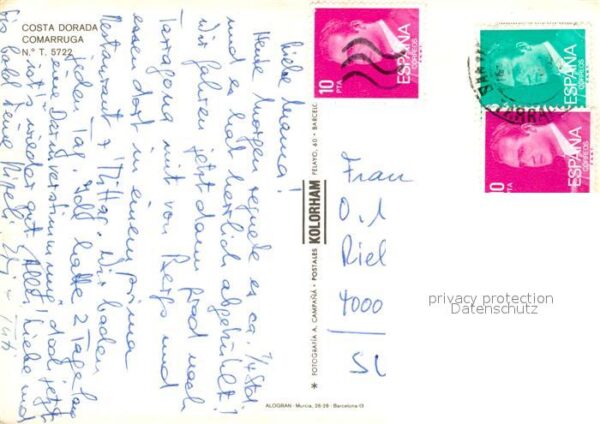 COSTA DORADA
COMARRUGA
N.º T. 5722
Liebe Mama!
Heute Morgen regnete es ca. 1/4 Std.
und es hat herrlich abgekühlt!
Wir fahren jetzt dann grad nach
Tarragona mit von und
essen dort in einem prima
Restaurant z'Mittag. Wir baden
jeden Tag. Ich hatte 2 Tage lang
eine doch jetzt
ist's wieder gut. Alles Liebe und
bis bald Deine
FOTOGRAFÍA A. CAMPAÑÁ - POSTALES KOLORHAM PELAYO, 60 - BARCEL
ALOGRAN - Murcia, 26-28 - Barcelona
10 PTA
ESPAÑA
CORREOS
ESPAÑA
CORREOS
TARRA
10 PTA
ESPAÑA
CORREOS
Frau
Riel
4000
privacy protection
Datenschutz